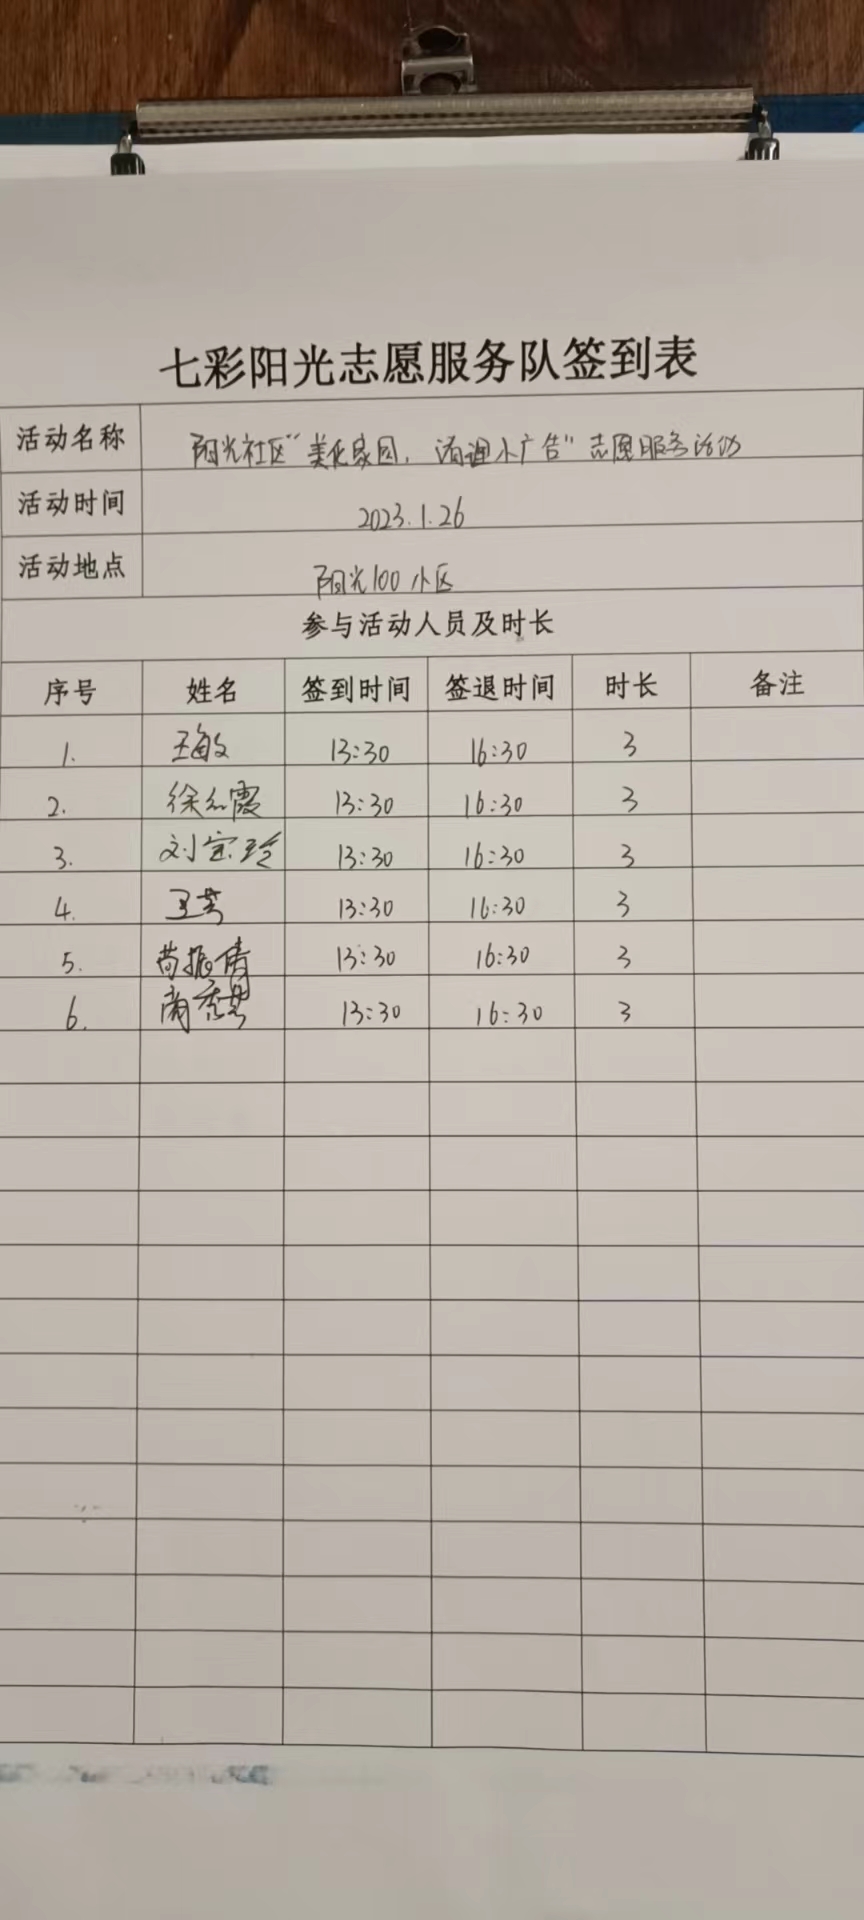 七彩阳光志愿服务队签到表
活动名称 阳光社区“美化家园,清理小广告”志愿服务活动
活动时间 2023.1.26
活动地点 阳光100小区
参与活动人员及时长
序号 姓名 签到时间 签退时间 时长 备注
1. 王敏 13:30 16:30 3
2. 徐红霞 13:30 16:30 3
3. 刘宝玲 13:30 16:30 3
4. 王芳 13:30 16:30 3
5. 苟振倩 13:30 16:30 3
6. 尚 13:30 16:30 3